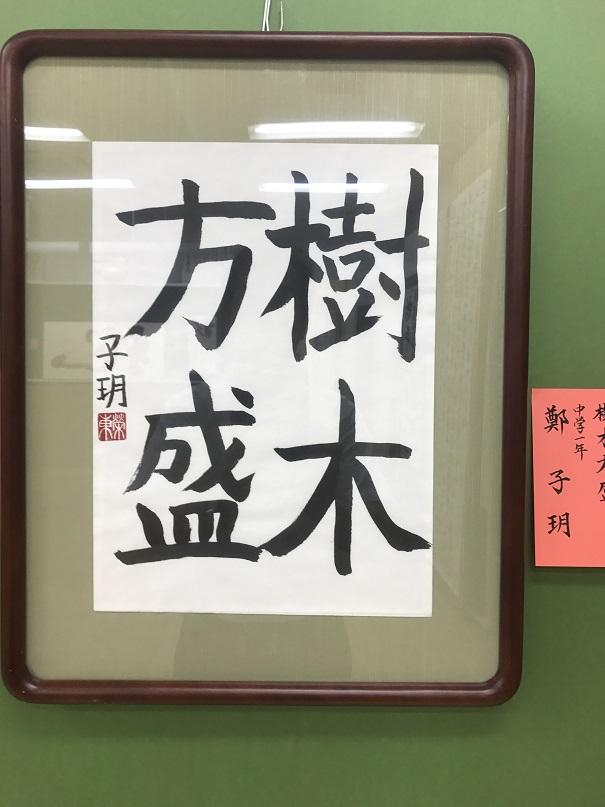 樹木
方盛
子玥
樹木方盛
中学一年
鄭子玥